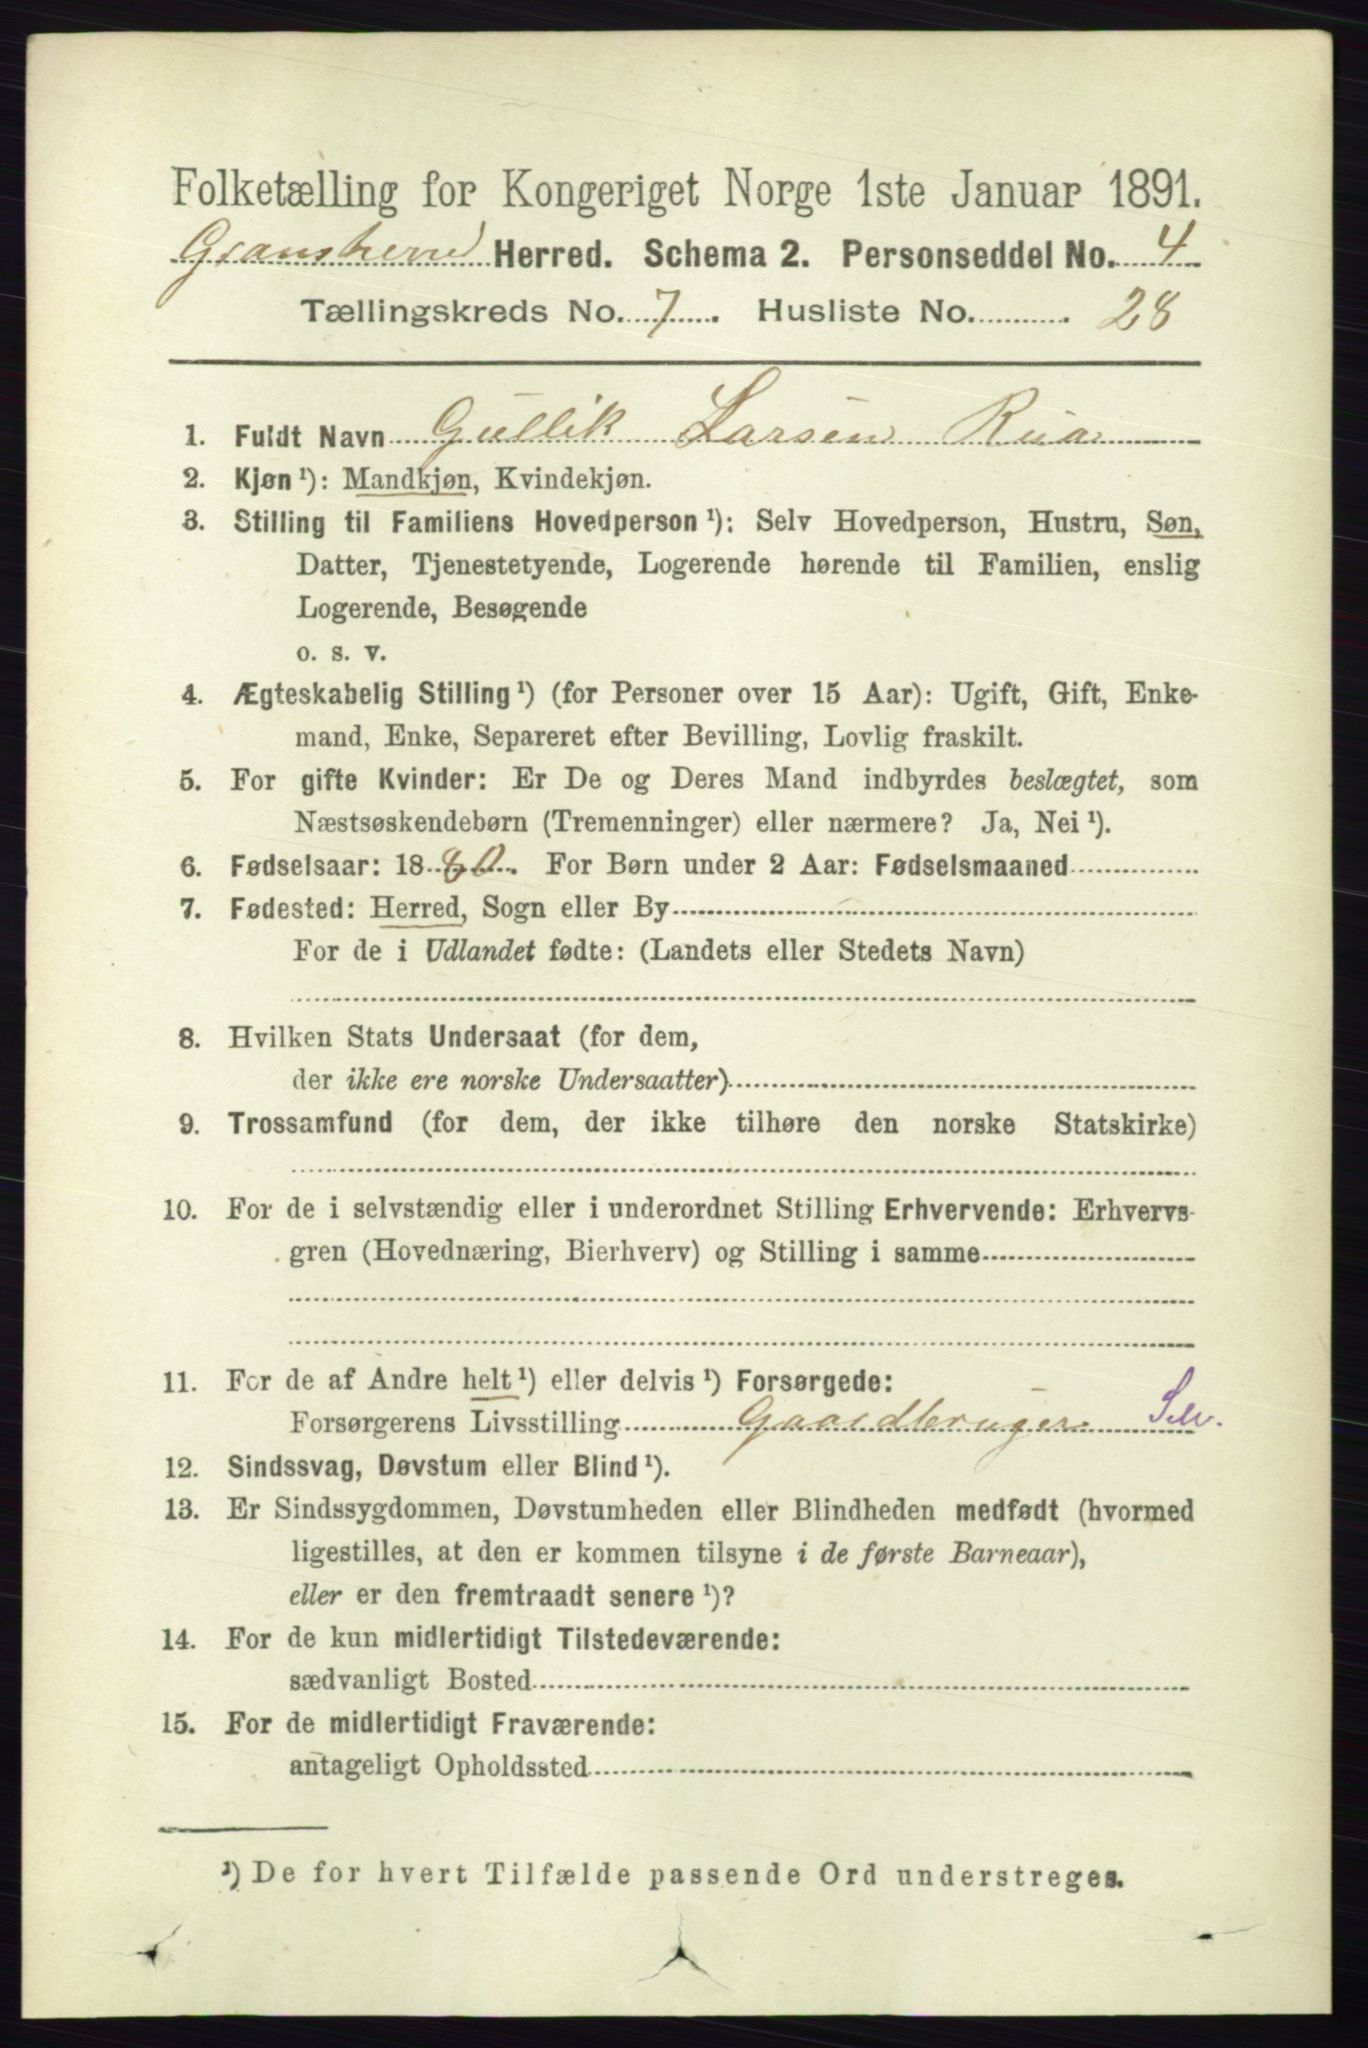 Folketælling for Kongeriget Norge 1ste Januar 1891.
Gransherred Herred. Schema 2. Personseddel No. 4
Tællingskreds No. 7. Husliste No. 28
1. Fuldt Navn Gullik Larsen Rua
2. Kjøn ¹): Mandkjøn, Kvindekjøn.
3. Stilling til Familiens Hovedperson ¹): Selv Hovedperson, Hustru, Søn,
Datter, Tjenestetyende, Logerende hørende til Familien, enslig
Logerende, Besøgende
o. s. v.
4. Ægteskabelig Stilling ¹) (for Personer over 15 Aar): Ugift, Gift, Enke-
mand, Enke, Separeret efter Bevilling, Lovlig fraskilt.
5. For gifte Kvinder: Er De og Deres Mand indbyrdes beslægtet, som
Næstsøskendebørn (Tremenninger) eller nærmere? Ja, Nei ¹).
6. Fødselsaar: 1880. For Børn under 2 Aar: Fødselsmaaned
7. Fødested: Herred, Sogn eller By
For de i Udlandet fødte: (Landets eller Stedets Navn)
8. Hvilken Stats Undersaat (for dem,
der ikke ere norske Undersaatter)
9. Trossamfund (for dem, der ikke tilhøre den norske Statskirke)
10. For de i selvstændig eller i underordnet Stilling Erhvervende: Erhvervs-
gren (Hovednæring, Bierhverv) og Stilling i samme
11. For de af Andre helt ¹) eller delvis ¹) Forsørgede:
Forsørgerens Livsstilling Gaardbruger Selv.
12. Sindssvag, Døvstum eller Blind ¹).
13. Er Sindssygdommen, Døvstumheden eller Blindheden medfødt (hvormed
ligestilles, at den er kommen tilsyne i de første Barneaar),
eller er den fremtraadt senere ¹)?
14. For de kun midlertidigt Tilstedeværende:
sædvanligt Bosted
15. For de midlertidigt Fraværende:
antageligt Opholdssted
¹) De for hvert Tilfælde passende Ord understreges.